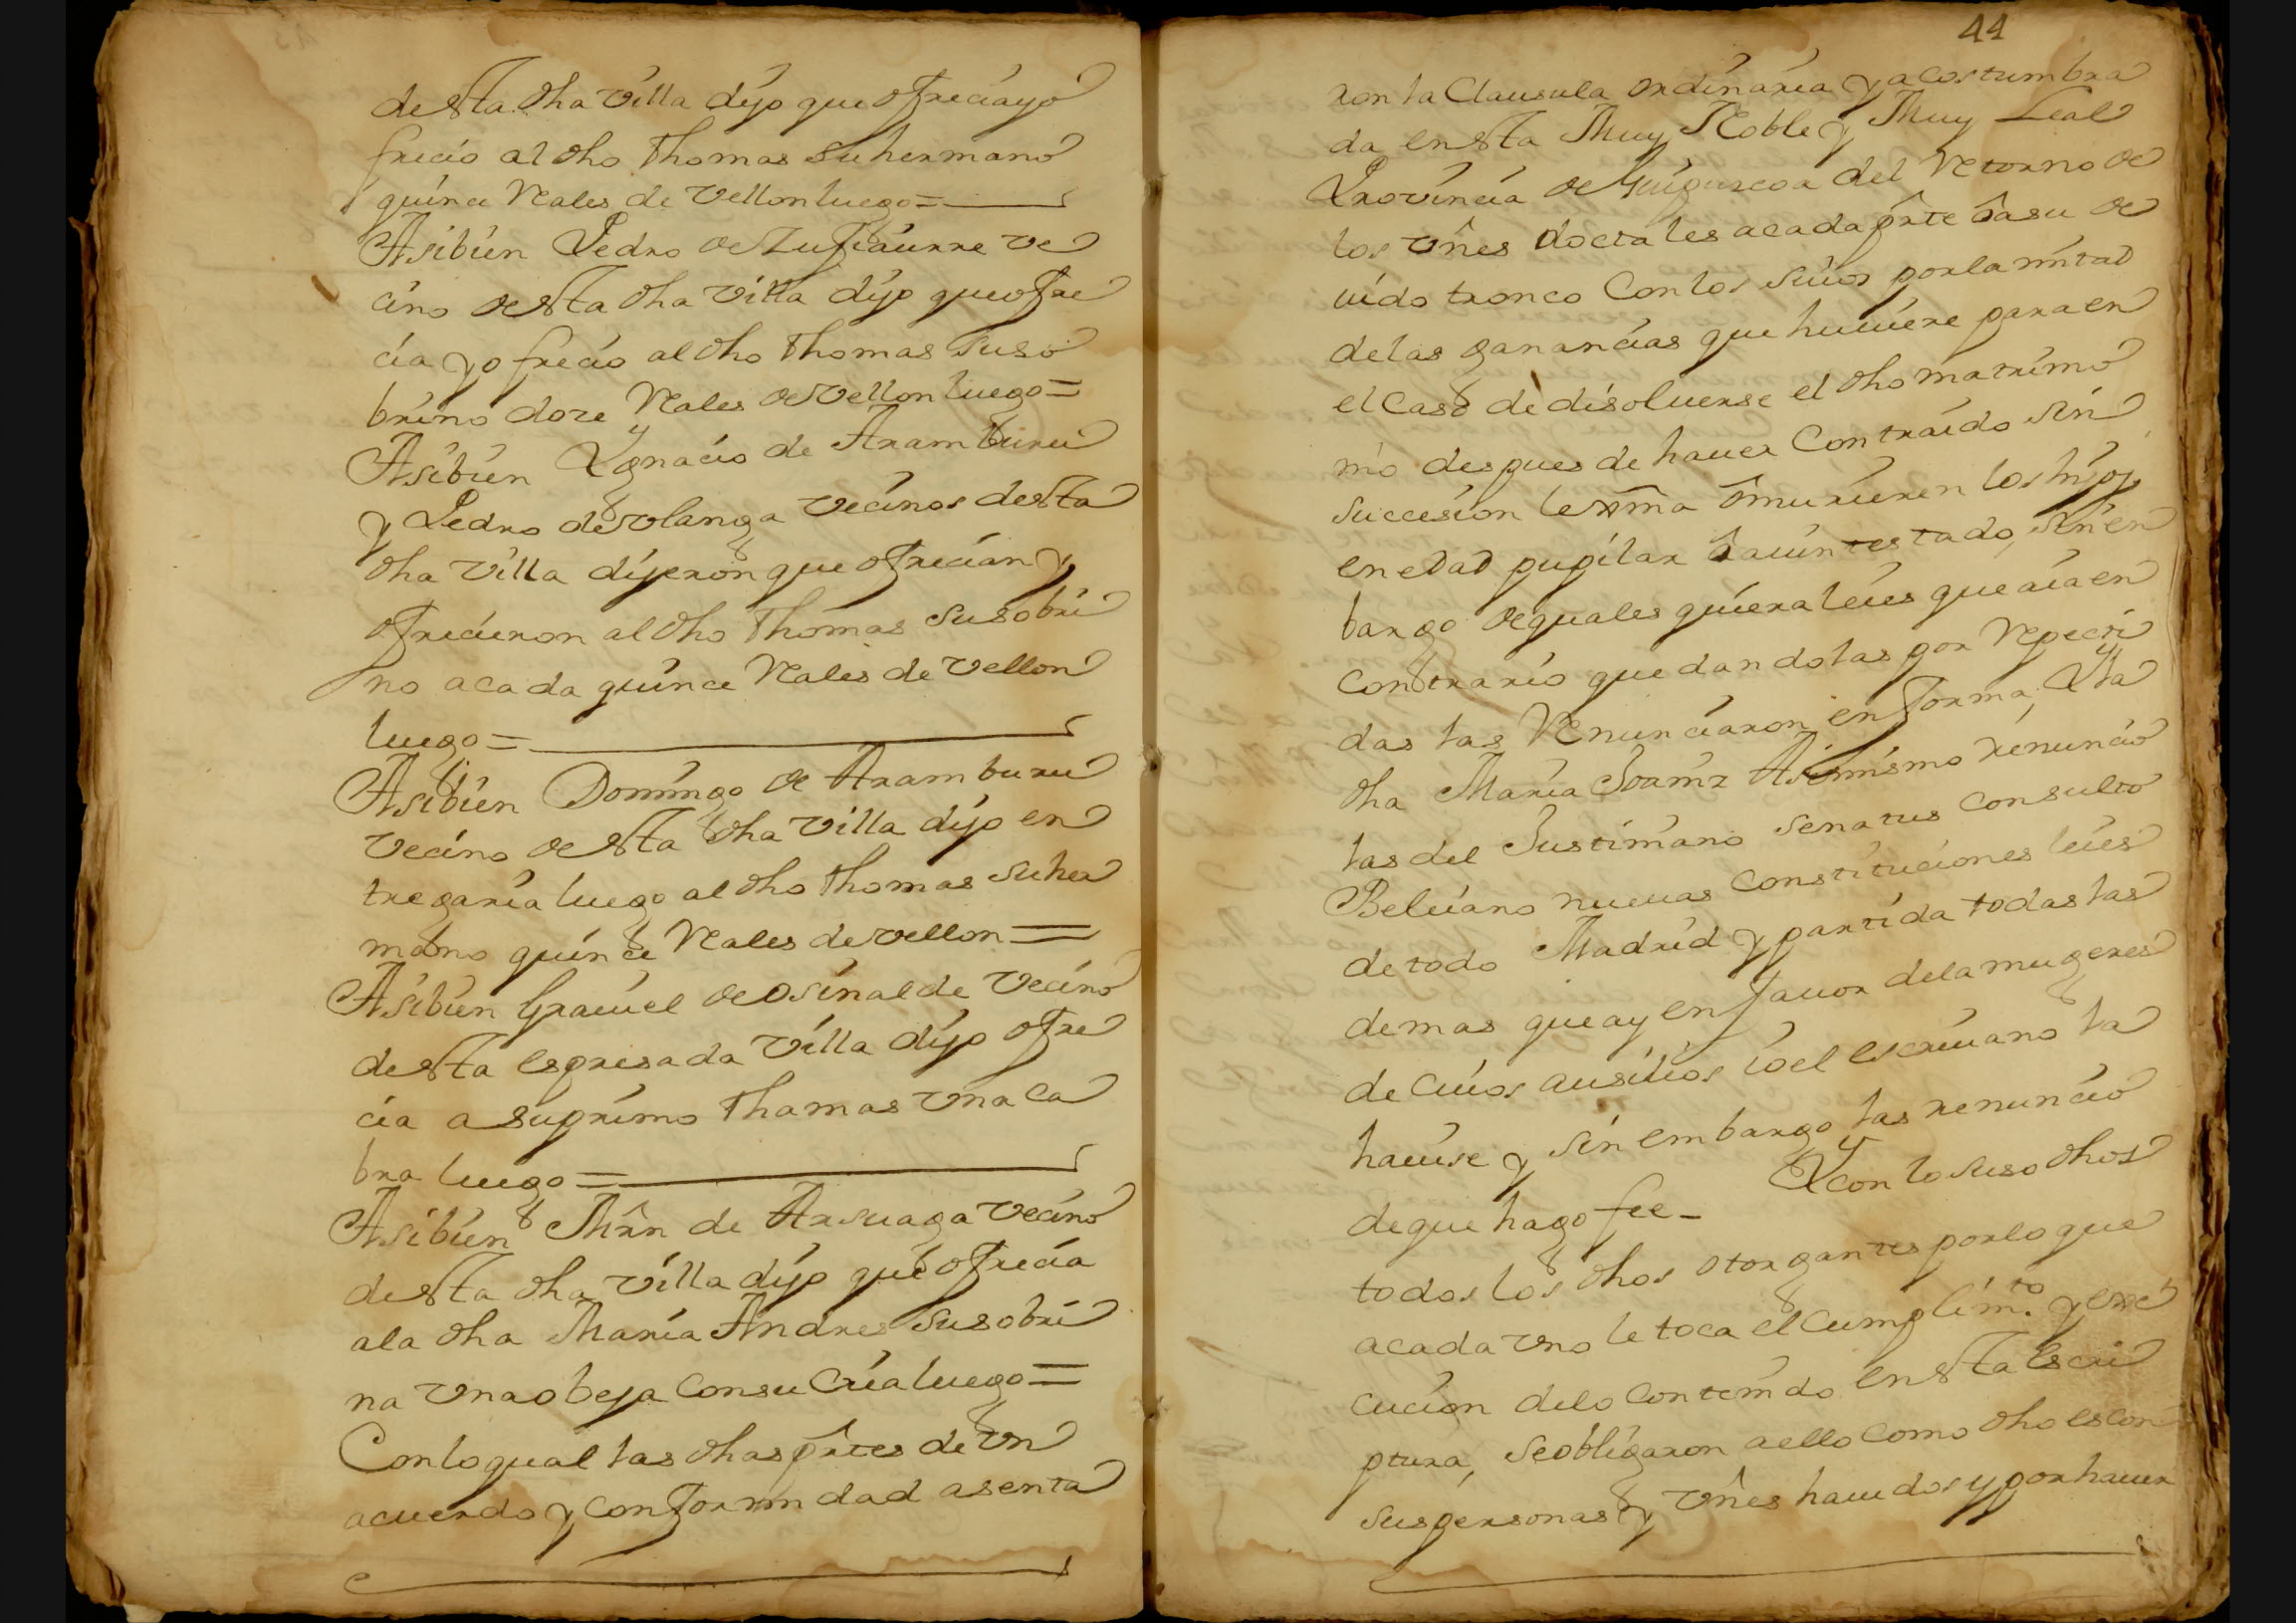 desta dha villa dijo que ofreciayo
frecio al dho Thomas su hermano
quince Reales de vellon luego =
Asibien Pedro de Zufiaurre ve
cino desta dha villa dijo que ofre
cia y ofrecio al dho Thomas suso
brino doze Reales de vellon luego =
Asibien Ygnacio de Aramburu
y Pedro de olanga vecinos desta
dha villa dijeron que ofrecian y
ofrecieron al dho Thomas susobri
no acada quince Reales de vellon
luego =
Asibien Domingo de Aramburu
vecino de esta dha villa dijo en
tregaria luego al dho Thomas suher
mano quince Reales de vellon =
Asibien Graviel de Osinalde vecino
desta espresada villa dijo ofre
cia a suprimo Thamas vna ca
bra luego =
Asibien Mrn de Arsuaga vecino
desta dha villa dijo que ofrecia
ala dha Maria Andres susobri
na vna obeja consu cria luego =
Conlo qual las dhas prtes de vn
acuerdo y conformidad asenta
44
ron la Clausula ordinaria y acostumbra
da ensta Muy Noble y Muy Leal
Provincia de Guipuzcoa del Retorno de
los vnes doctales acada prte i asu de
uido tronco Con los suios por la mitad
delas ganancias que huuiere para en
el Caso de disoluerse el dho matrimo
nio despues de hauer Contraido sin
succesion lexma o murieren los hijos
en edad pupilar i auintestado, sin en
bargo de quales quiera leies que aia en
contrario que dandolas por Repeti
das las Renunciaron en forma, Y la
dha Maria Joaniz Asimismo renuncio
las del Justiniano Senatus Consulto
Beleiano nueuas constituciones leies
de todo Madrid y partida todas las
demas que ay en fauor dela mugeres
de cuios ausilios io el escriuano la
hauise y sin embargo las renuncio
de que hago fee - Y con lo suso dhos
todos los dhos otorgantes por lo que
acada vno le toca el cumplimto. y exe
cucion delo contenido en sta escri
ptura, se obligaron aello como dho es con
sus personas y vnes hauidos y por hauer